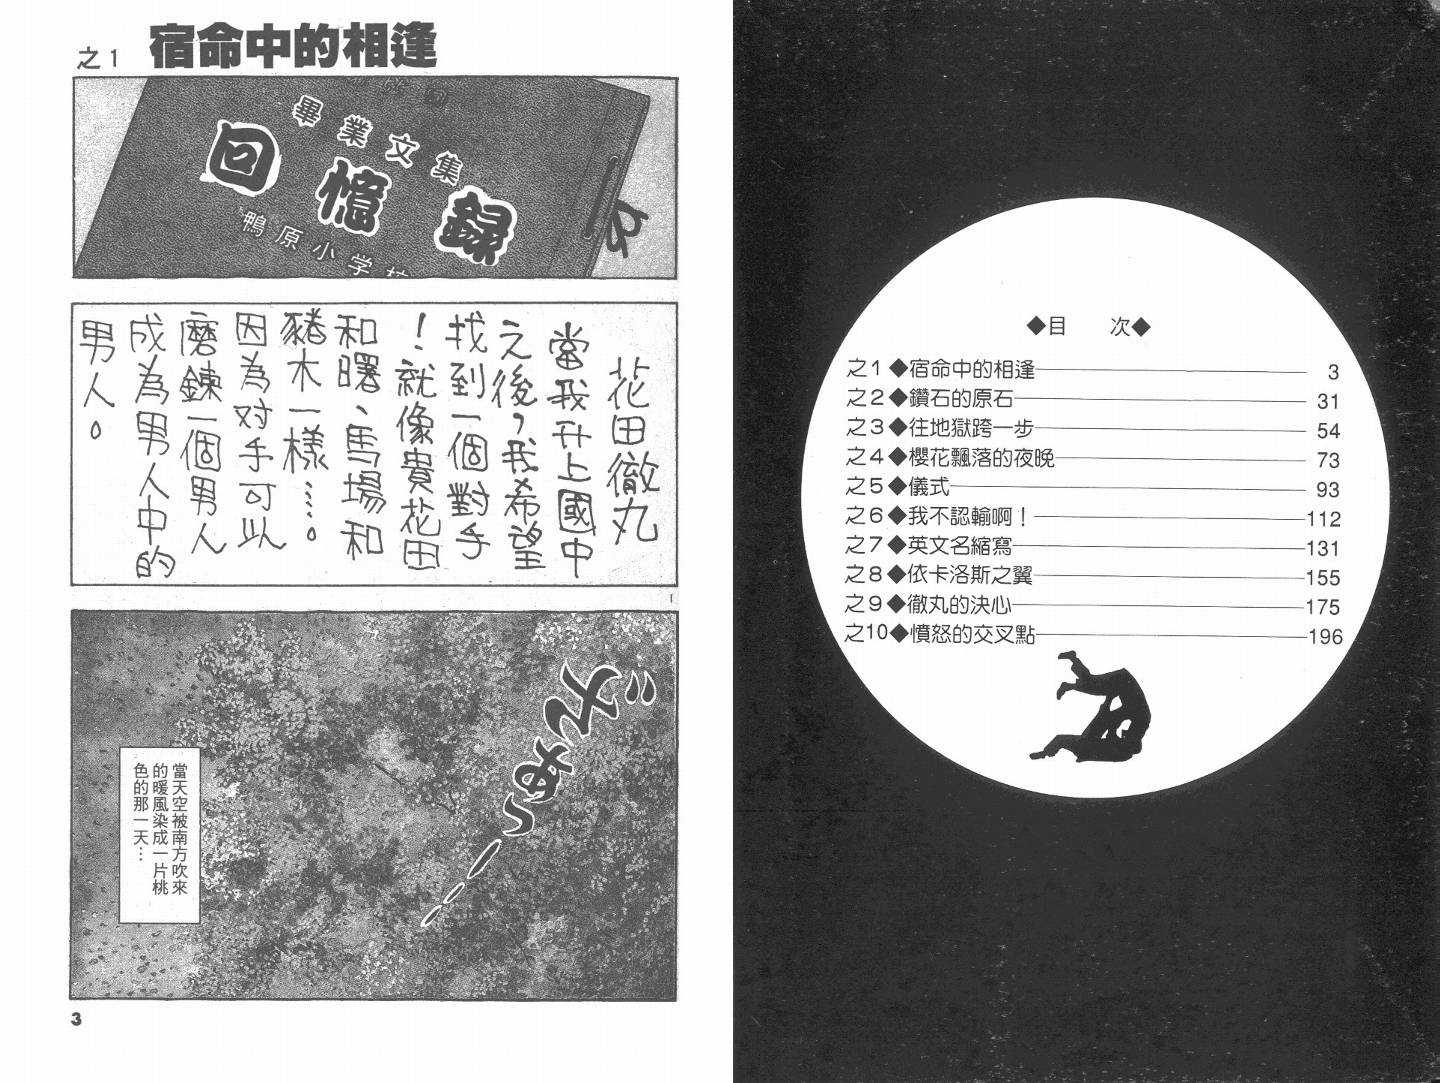 ◆目　次◆
之1◆宿命中的相逢 3
之2◆鑽石的原石 31
之3◆往地獄跨一步 54
之4◆櫻花飄落的夜晚 73
之5◆儀式 93
之6◆我不認輸啊！ 112
之7◆英文名縮寫 131
之8◆依卡洛斯之翼 155
之9◆徹丸的決心 175
之10◆憤怒的交叉點 196
之1 宿命中的相逢
畢業文集
回憶録
鴨原小学校
花田徹丸
當我升上國中
之後，我希望
找到一個對手
！就像貴花田
和曙、馬場和
豬木一樣……。
因為对手可以
磨鍊一個男人
成為男人中的
男人。
當天空被南方吹來
的暖風染成一片桃
色的那一天…
3